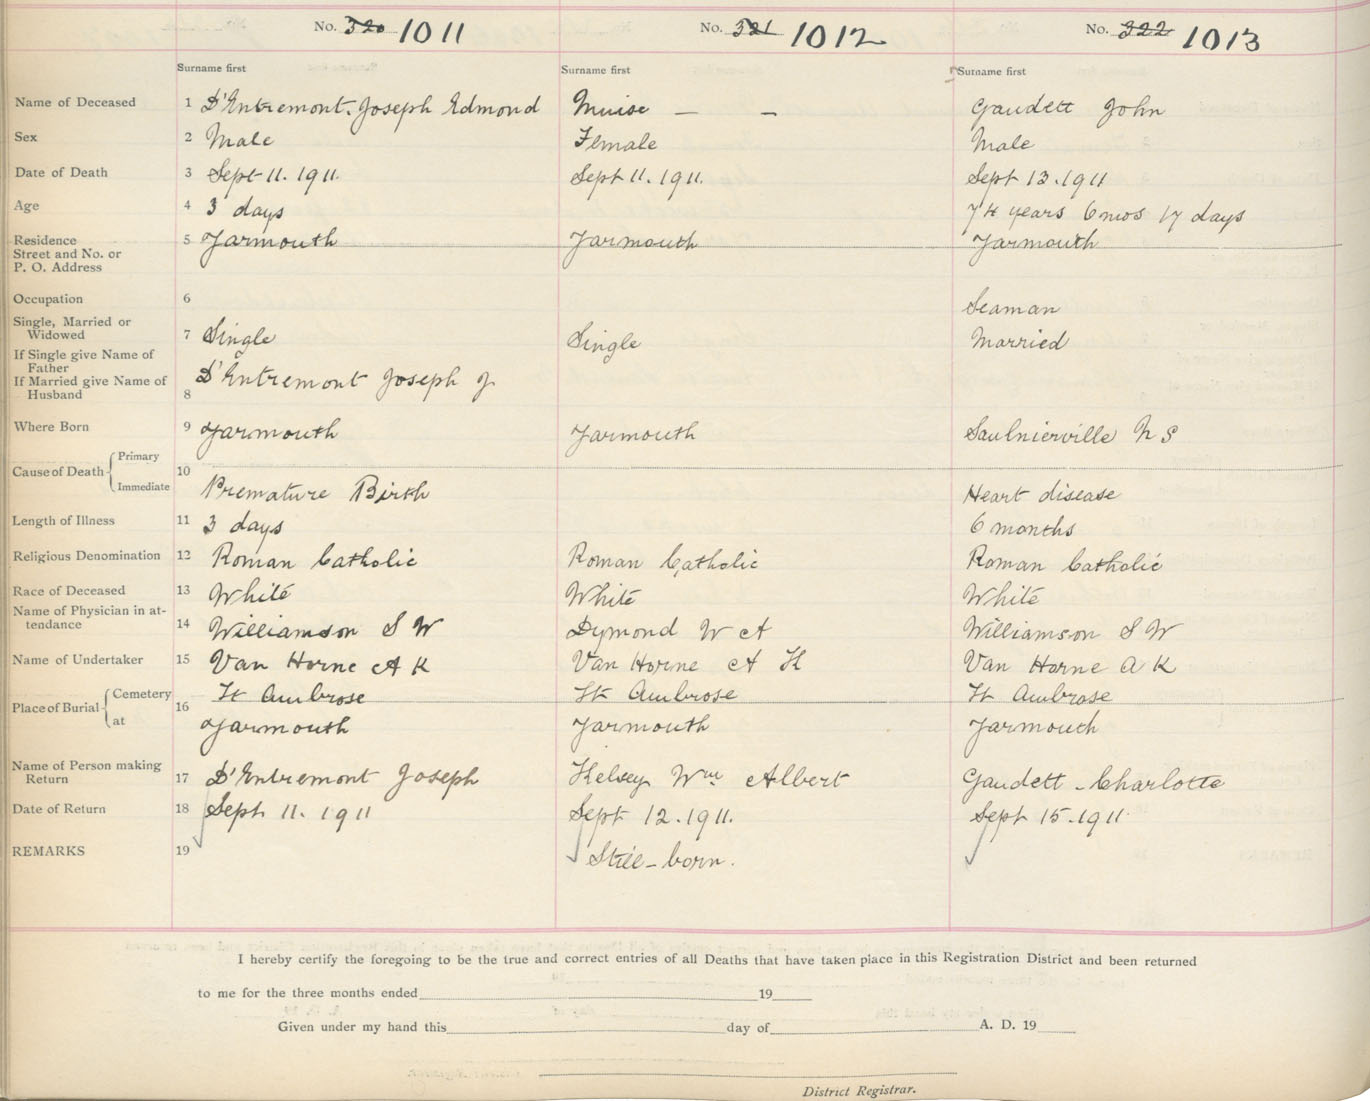 No. 320 1011 No. 321 1012 No. 322 1013
Surname first Surname first Surname first
Name of Deceased 1 D'Entremont Joseph Edmond Muise — – Gaudett John
Sex 2 Male Female Male
Date of Death 3 Sept 11. 1911. Sept 11. 1911. Sept 13. 1911
Age 4 3 days 74 years 6 mos 17 days
Residence 5 Yarmouth Yarmouth Yarmouth
Street and No. or
P. O. Address
Occupation 6 Seaman
Single, Married or
Widowed 7 Single Single Married
If Single give Name of
Father
If Married give Name of D'Entremont Joseph J
Husband 8
Where Born 9 Yarmouth Yarmouth Saulnierville N S
Primary
Cause of Death 10
Immediate Premature Birth Heart disease
Length of Illness 11 3 days 6 months
Religious Denomination 12 Roman Catholic Roman Catholic Roman Catholic
Race of Deceased 13 White White White
Name of Physician in at-
tendance 14 Williamson S W Dymond W A Williamson S W
Name of Undertaker 15 Van Horne A K Van Horne A K Van Horne A K
Cemetery St Ambrose St Ambrose St Ambrose
Place of Burial 16
at Yarmouth Yarmouth Yarmouth
Name of Person making
Return 17 D'Entremont Joseph Kelsey Wm Albert Gaudett - Charlotte
Date of Return 18 Sept 11. 1911 Sept 12. 1911. Sept 15. 1911
REMARKS 19 Still-born.
I hereby certify the foregoing to be the true and correct entries of all Deaths that have taken place in this Registration District and been returned
to me for the three months ended 19
Given under my hand this day of A. D. 19
District Registrar.